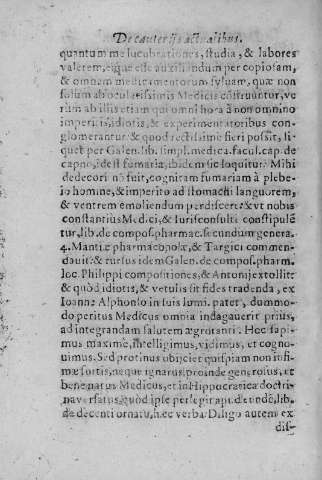 De cauterijs actualibus.
quantum me lucubrationes, studia, & labores
valerem, eique esse auxiliandum per copiosam,
& omnem medicamentorum syluam, quæ non
solum ab oculatissimis Medicis cõstruuntur, ve
rum ab illis etiam qui omni hora ā non omnino
imperitis, idiotis, & experimentatoribus con-
glomerantur & quod rectissime fieri possit, li-
quet per Galen. lib. simpl. medica. facul. cap. de
capno, idest fumaria, ibidem sic loquitur. Mihi
dedecori nō fuit, cognitam fumariam à plebe-
io homine, & imperito ad stomachi languorem,
& ventrem emoliendum perdiscere: & vt nobis
constantius Medici, & Iurisconsulti constipulē
tur, lib. de compos. pharmac. secundum genera.
4. Mantiæ pharmacopolæ, & Targici commen-
dauit: & rursus idem Galen. de compos. pharm.
loc. Philippi compositiones, & Antonij extollit:
& quòd idiotis, & vetulis sit fides tradenda, ex
Ioanne Alphonso in suis lumi. pater, dummo-
do peritus Medicus omnia indagauerit prius,
ad integrandam salutem ægrotanti. Hoc sapi-
mus maxime, intelligimus, vidimus, et cogno-
uimus. Sed protinus objiciet quispiam non infi-
mæ sortis, neque ignarus, proinde generosus, et
bene natus Medicus, et in Hippocratica doctri-
na versatus, quòd ipse perlegi rapi. de undè, lib.
de decenti ornatu, hæc verba Diligo autem ex
dis-